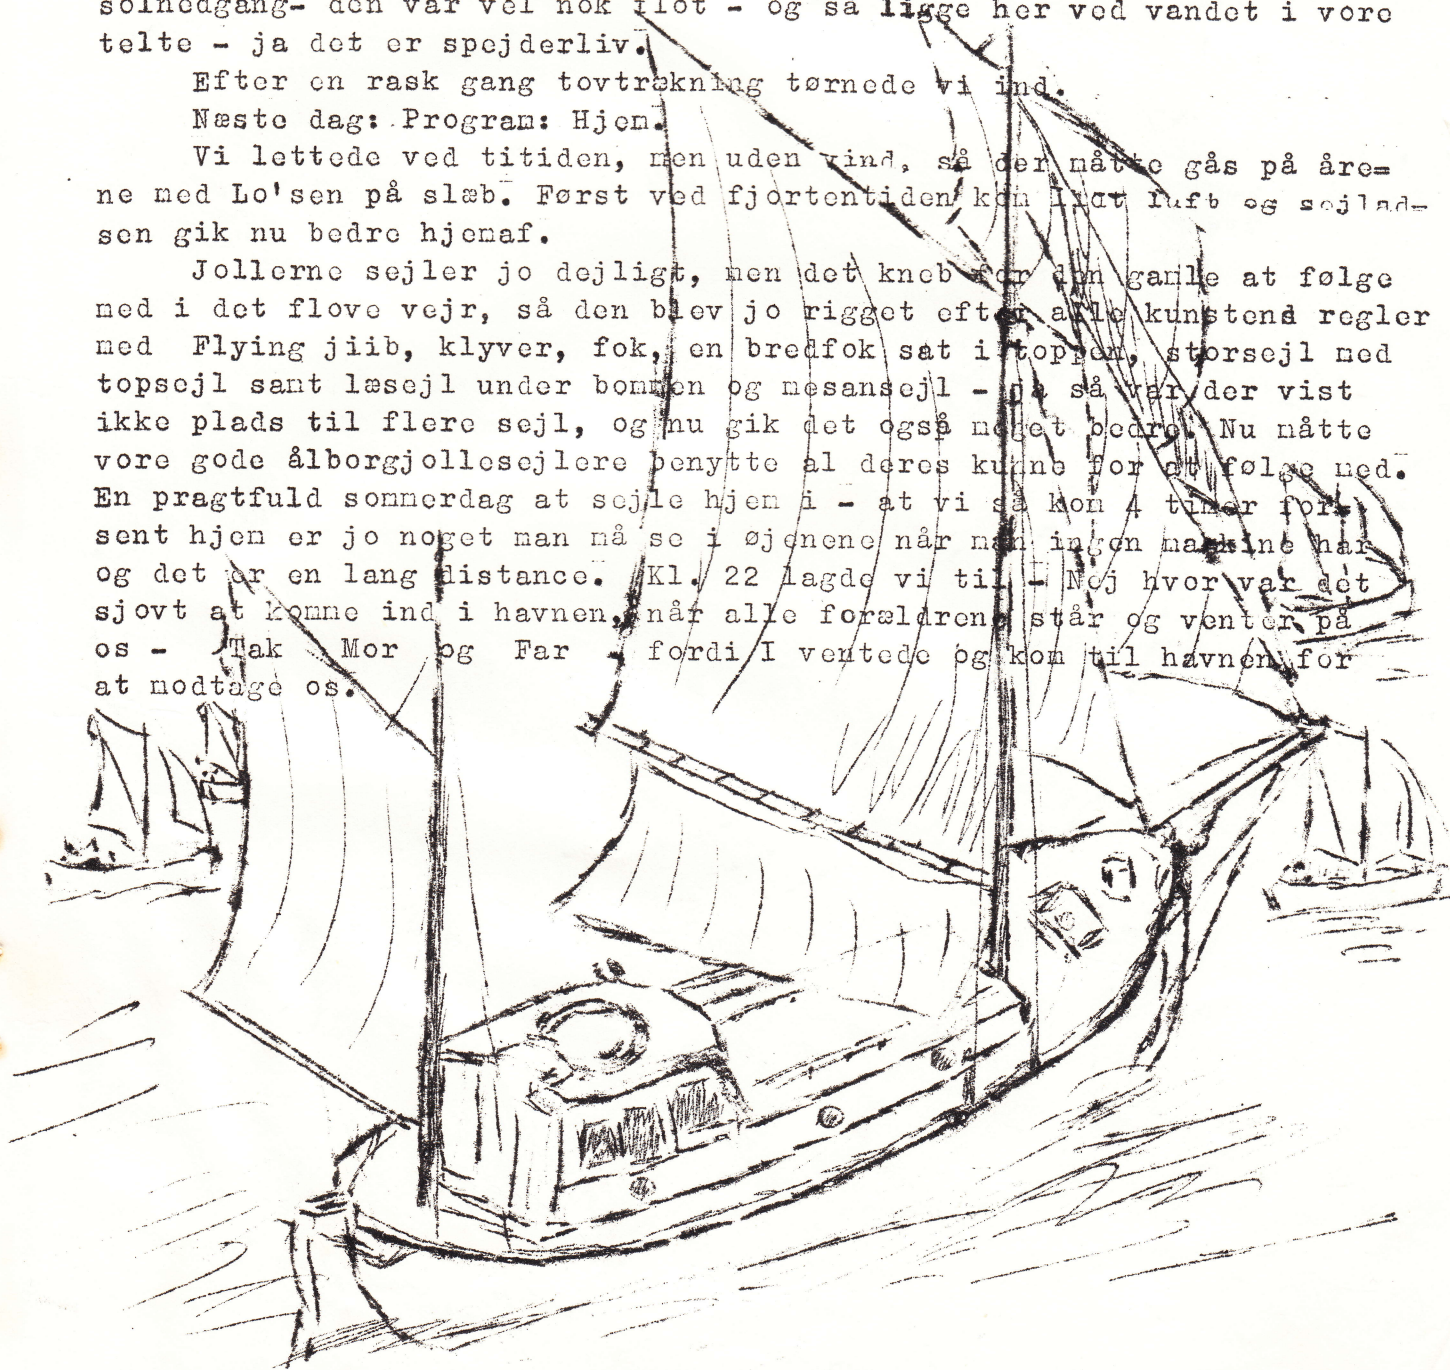 solnedgang- den var vel nok flot - og så ligge her ved vandet i vore
telte - ja det er spejderliv.
Efter en rask gang tovtrækning tørnede vi ind.
Næste dag: Program: Hjem.
Vi lettede ved titiden, men uden vind, så der måtte gås på åre=
ne med Lo'sen på slæb. Først ved fjortentiden kom lidt luft og sejlad-
sen gik nu bedre hjemaf.
Jollerne sejler jo dejligt, men det kneb for den gamle at følge
med i det flove vejr, så den blev jo rigget efter alle kunstens regler
med Flying jiib, klyver, fok, en bredfok sat i toppen, storsejl med
topsejl samt læsejl under bommen og mesansejl - ja så var der vist
ikke plads til flere sejl, og nu gik det også noget bedre. Nu måtte
vore gode ålborgjollesejlere benytte al deres kunne for at følge med.
En pragtfuld sommerdag at sejle hjem i - at vi så kom 4 timer for
sent hjem er jo noget man må se i øjenene når man ingen maskine har
og det er en lang distance. Kl. 22 lagde vi til - Nej hvor var det
sjovt at komme ind i havnen, når alle forældrene står og venter på
os - Tak Mor og Far - fordi I ventede og kom til havnen for
at modtage os.